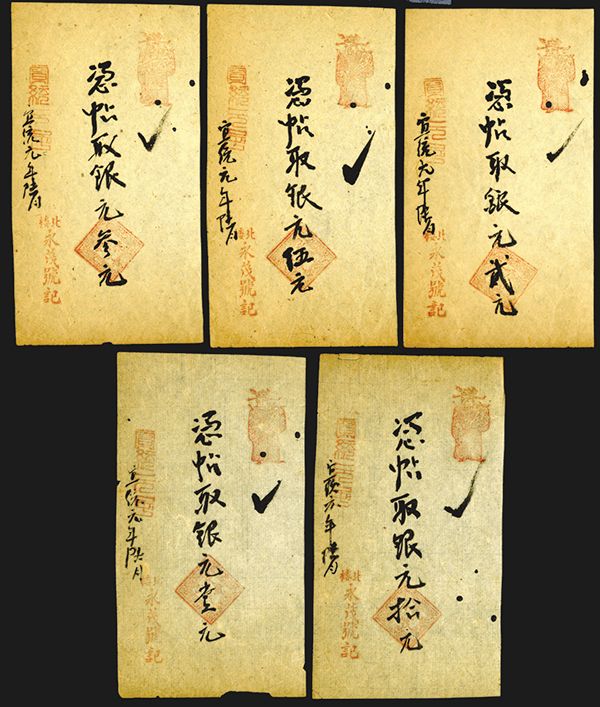 憑帖取銀元叁元
北
永茂號記
宣統元年陸月
憑帖取銀元伍元
北
永茂號記
宣統元年陸月
憑帖取銀元貳元
北
永茂號記
宣統元年陸月
憑帖取銀元壹元
永茂號記
宣統元年陸月
憑帖取銀元拾元
北
永茂號記
宣統元年陸月